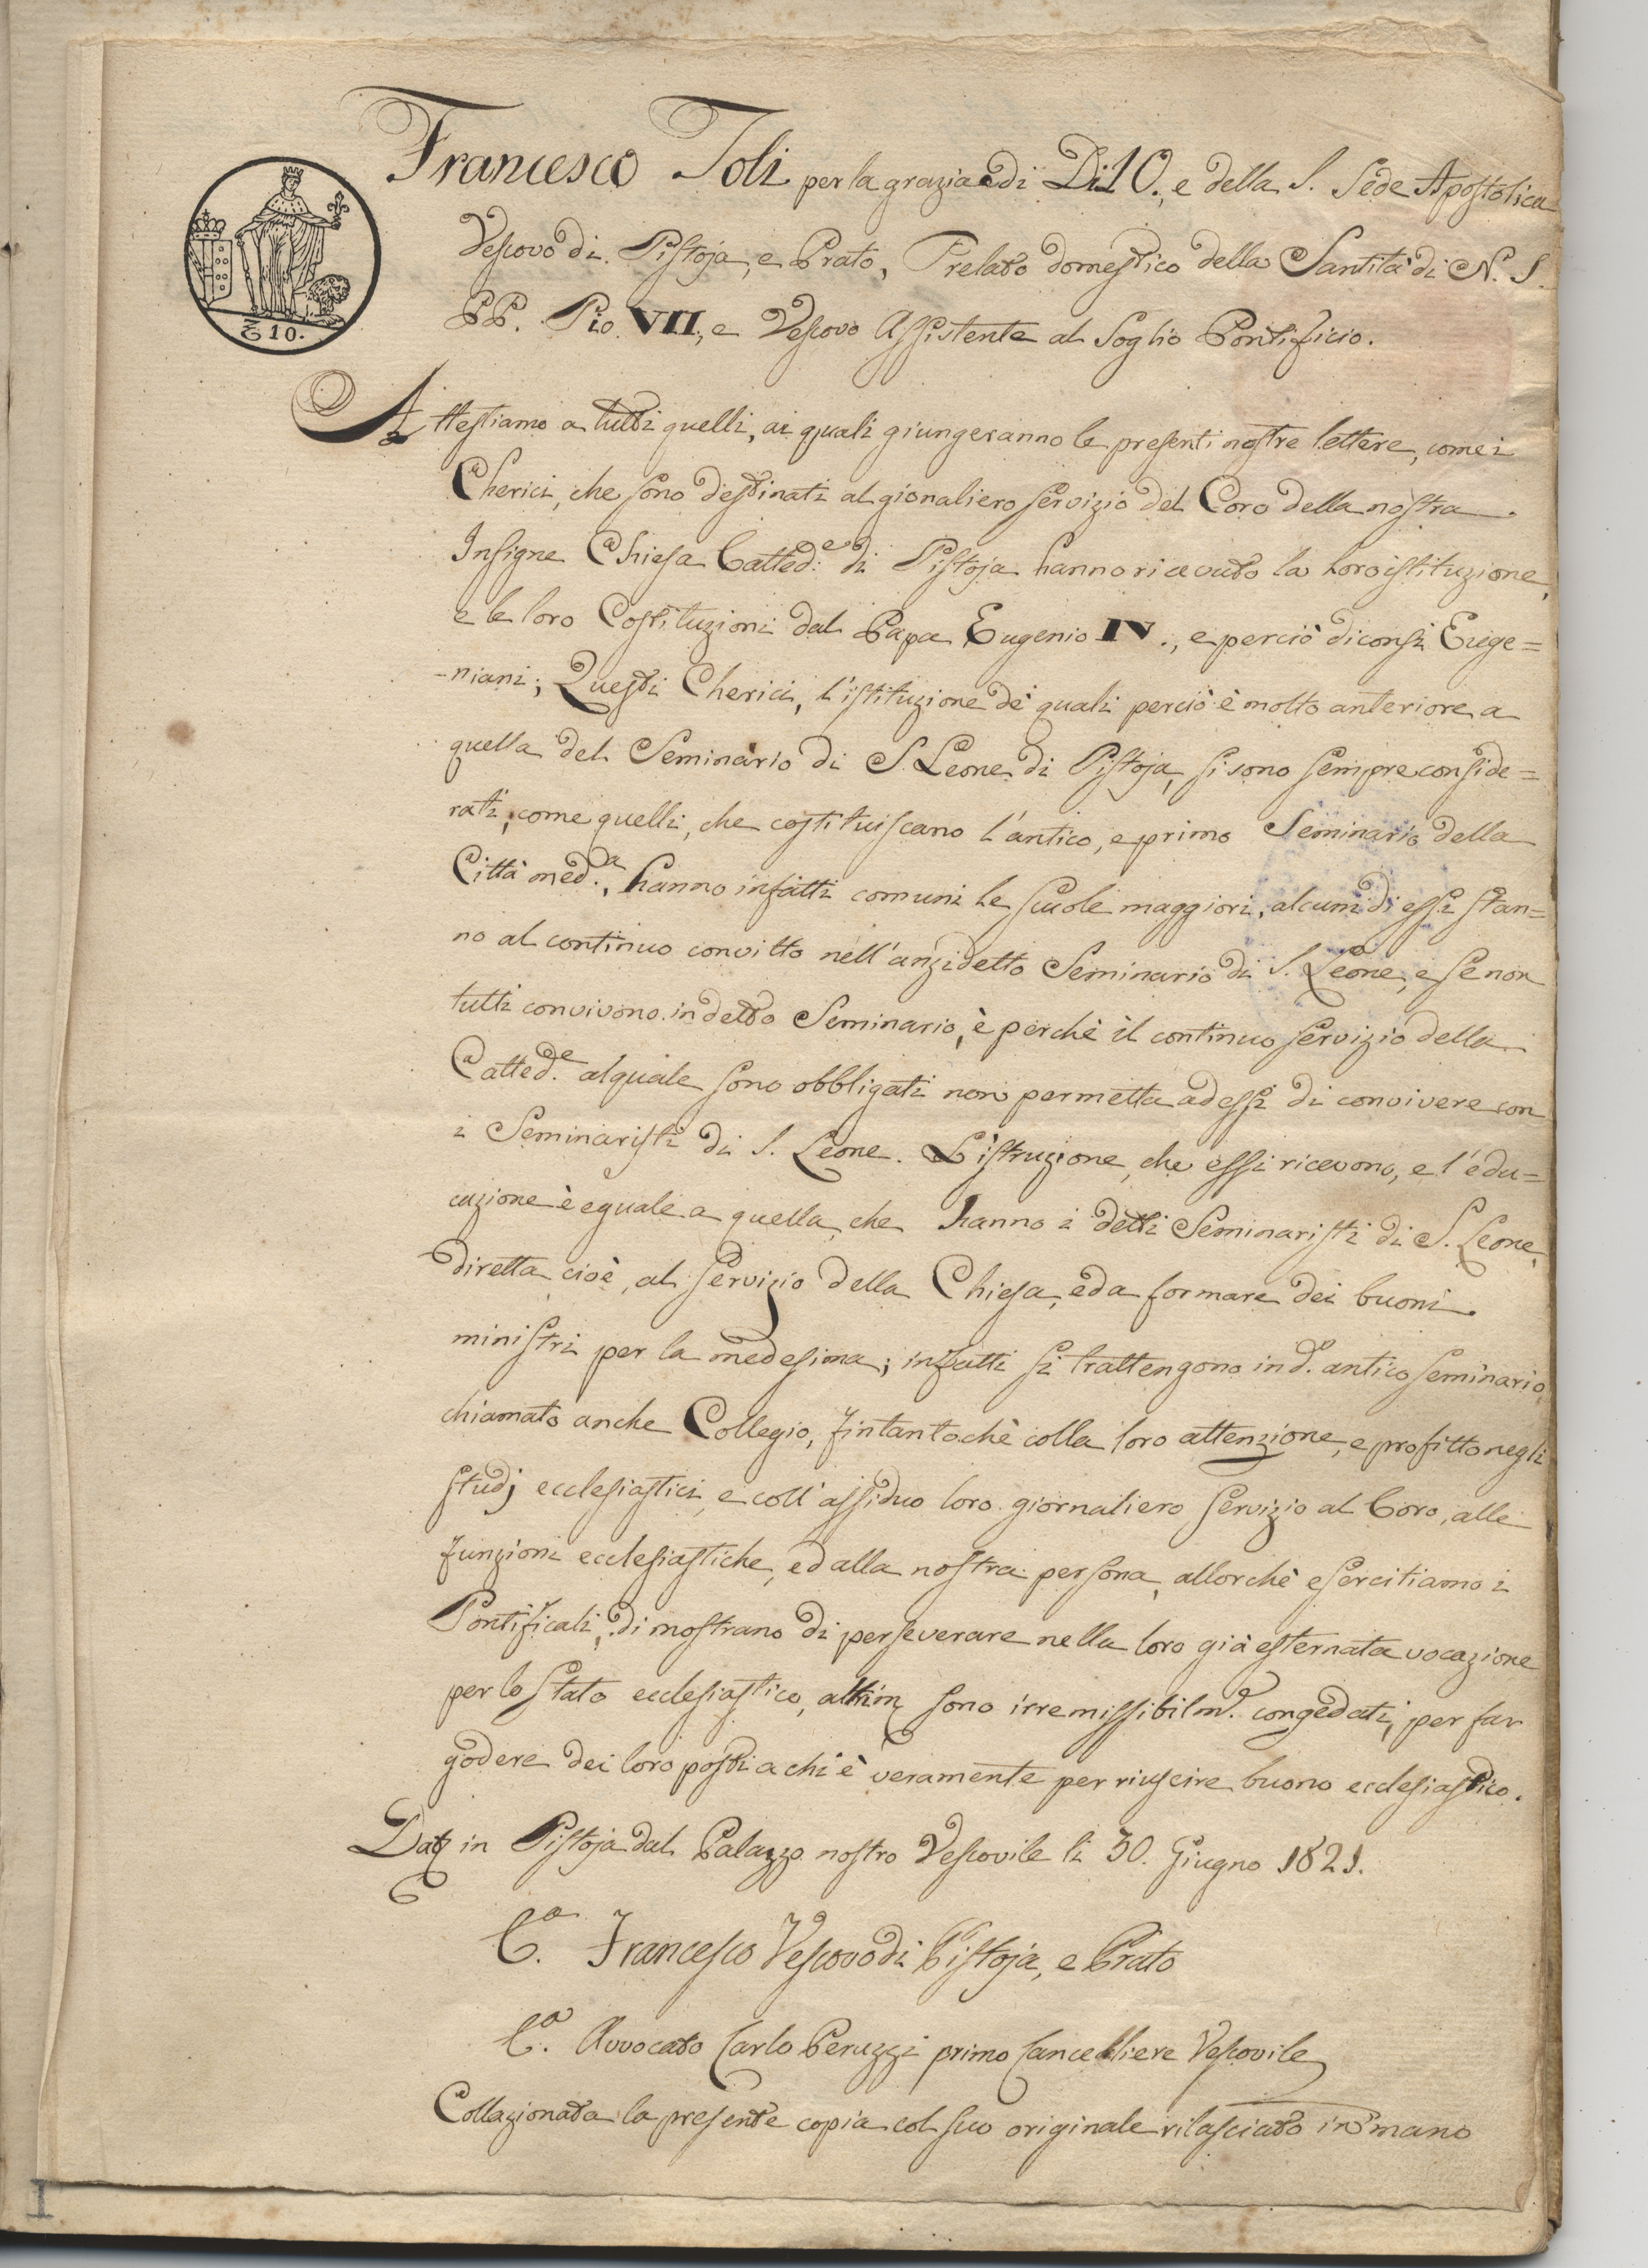 Francesco Toli per la grazia di DiIO, e della S. Sede Apostolica
Vescovo di Pistoja, e Prato, Prelato domestico della Santità di N. S.
PP. Pio VII, e Vescovo Assistente al Soglio Pontificio.
10.
Attestiamo a tutti quelli, ai quali giungeranno le presenti nostre lettere, come i
Cherici, che sono destinati al gionaliero servizio del Coro della nostra
Insigne Chiesa Catted.e di Pistoja hanno ricevuto la loro istituzione,
e le loro Costituzioni dal Papa Eugenio IV., e perciò diconsi Euge=
-niani; Questi Cherici, l'istituzione de' quali perciò è molto anteriore a
quella del Seminario di S. Leone di Pistoja, si sono sempre conside=
rati, come quelli, che costituiscano l'antico, e primo Seminario della
Città med.a, hanno infatti comuni le scuole maggiori, alcuni di essi stan=
no al continuo convitto nell'anzidetto Seminario di S. Leone, e se non
tutti convivono in detto Seminario, è perchè il continuo servizio della
Catted.e al quale sono obbligati non permetta ad essi di convivere con
i Seminaristi di S. Leone. L'istruzione, che essi ricevono, e l'edu=
cazione è eguale a quella, che hanno i detti Seminaristi di S. Leone,
diretta cioè, al servizio della Chiesa, e da formare dei buoni
ministri per la medesima; infatti si trattengono in d.o antico seminario,
chiamato anche Collegio, fintantochè colla loro attenzione, e profitto negli
studj ecclesiastici, e coll'assiduo loro giornaliero servizio al Coro, alle
funzioni ecclesiastiche, ed alla nostra persona, allorchè esercitiamo i
Pontificali, dimostrano di perseverare nella loro già esternata vocazione
per lo stato ecclesiastico, altrim sono irremissibilm.e congedati, per far
godere dei loro posti a chi è veramente per riuscire buono ecclesiastico.
Dat in Pistoja dal Palazzo nostro Vescovile li 30. Giugno 1821.
C.a Francesco Vescovo di Pistoja, e Prato
C.a Avvocato Carlo Peruzzi primo Cancelliere Vescovile
Collazionata la presente copia col suo originale rilasciato in mano
I